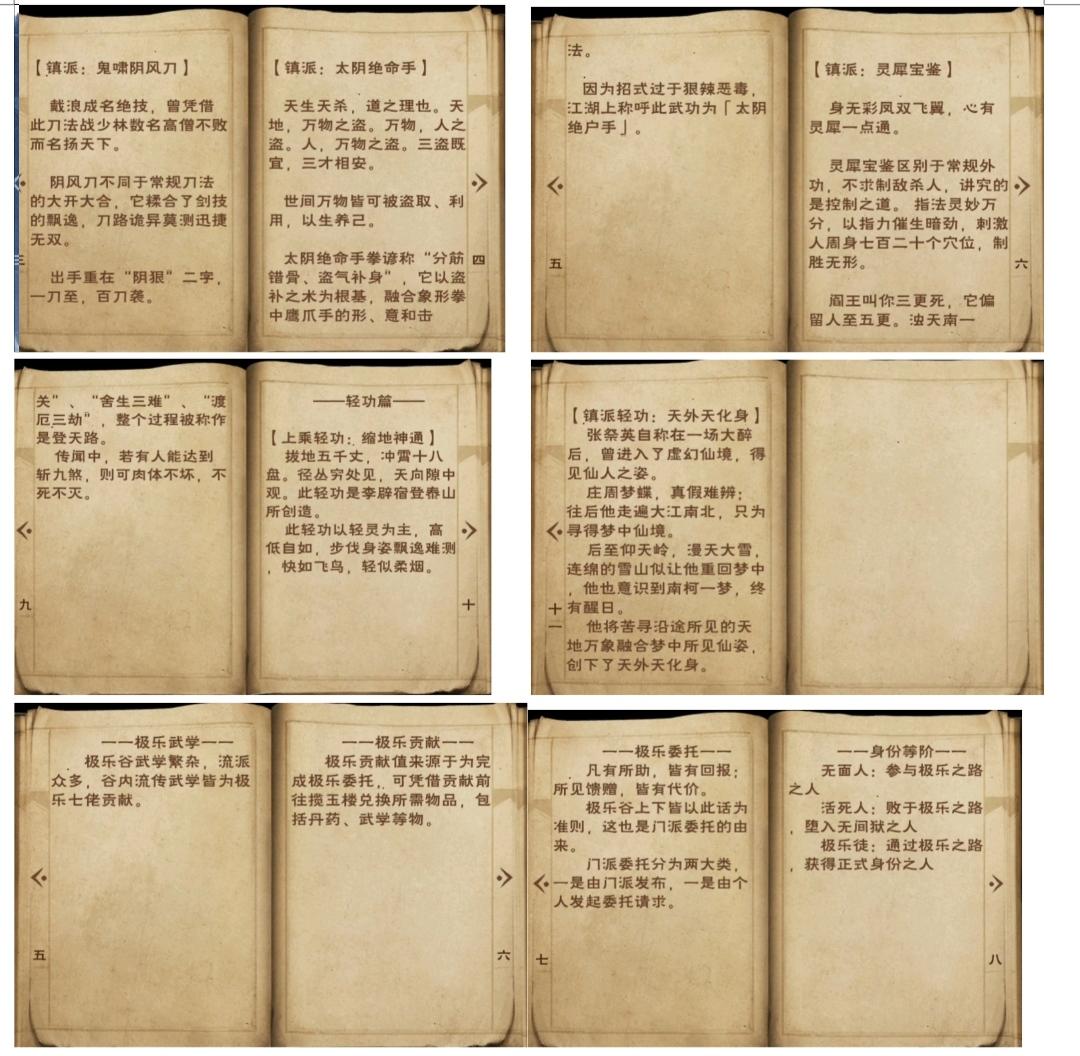 【镇派：鬼啸阴风刀】
戴浪成名绝技，曾凭借
此刀法战少林数名高僧不败
而名扬天下。
阴风刀不同于常规刀法
的大开大合，它糅合了剑技
的飘逸，刀路诡异莫测迅捷
无双。
出手重在“阴狠”二字，
一刀至，百刀袭。
三
【镇派：太阴绝命手】
天生天杀，道之理也。天
地，万物之盗。万物，人之
盗。人，万物之盗。三盗既
宜，三才相安。
世间万物皆可被盗取、利
用，以生养己。
太阴绝命手拳谚称“分筋
错骨、盗气补身”，它以盗
补之术为根基，融合象形拳
中鹰爪手的形、意和击
四
法。
因为招式过于狠辣恶毒，
江湖上称呼此武功为「太阴
绝户手」。
五
【镇派：灵犀宝鉴】
身无彩凤双飞翼，心有
灵犀一点通。
灵犀宝鉴区别于常规外
功，不求制敌杀人，讲究的
是控制之道。 指法灵妙万
分，以指力催生暗劲，刺激
人周身七百二十个穴位，制
胜无形。
阎王叫你三更死，它偏
留人至五更。浊天南一
六
关”、“舍生三难”、“渡
厄三劫”，整个过程被称作
是登天路。
传闻中，若有人能达到
斩九煞，则可肉体不坏，不
死不灭。
九
——轻功篇——
【上乘轻功：缩地神通】
拔地五千丈，冲霄十八
盘。径丛穷处见，天向隙中
观。此轻功是李辟宿登泰山
所创造。
此轻功以轻灵为主，高
低自如，步伐身姿飘逸难测
，快如飞鸟，轻似柔烟。
十
【镇派轻功：天外天化身】
张祭英自称在一场大醉
后，曾进入了虚幻仙境，得
见仙人之姿。
庄周梦蝶，真假难辨；
往后他走遍大江南北，只为
寻得梦中仙境。
后至仰天岭，漫天大雪，
连绵的雪山似让他重回梦中
，他也意识到南柯一梦，终
有醒日。
他将苦寻沿途所见的天
地万象融合梦中所见仙姿，
创下了天外天化身。
十一
——极乐武学——
极乐谷武学繁杂，流派
众多，谷内流传武学皆为极
乐七佬贡献。
五
——极乐贡献——
极乐贡献值来源于为完
成极乐委托，可凭借贡献前
往揽玉楼兑换所需物品，包
括丹药、武学等物。
六
——极乐委托——
凡有所助，皆有回报；
所见馈赠，皆有代价。
极乐谷上下皆以此话为
准则，这也是门派委托的由
来。
门派委托分为两大类，
一是由门派发布，一是由个
人发起委托请求。
七
——身份等阶——
无面人：参与极乐之路
之人
活死人：败于极乐之路
，堕入无间狱之人
极乐徒：通过极乐之路
，获得正式身份之人
八